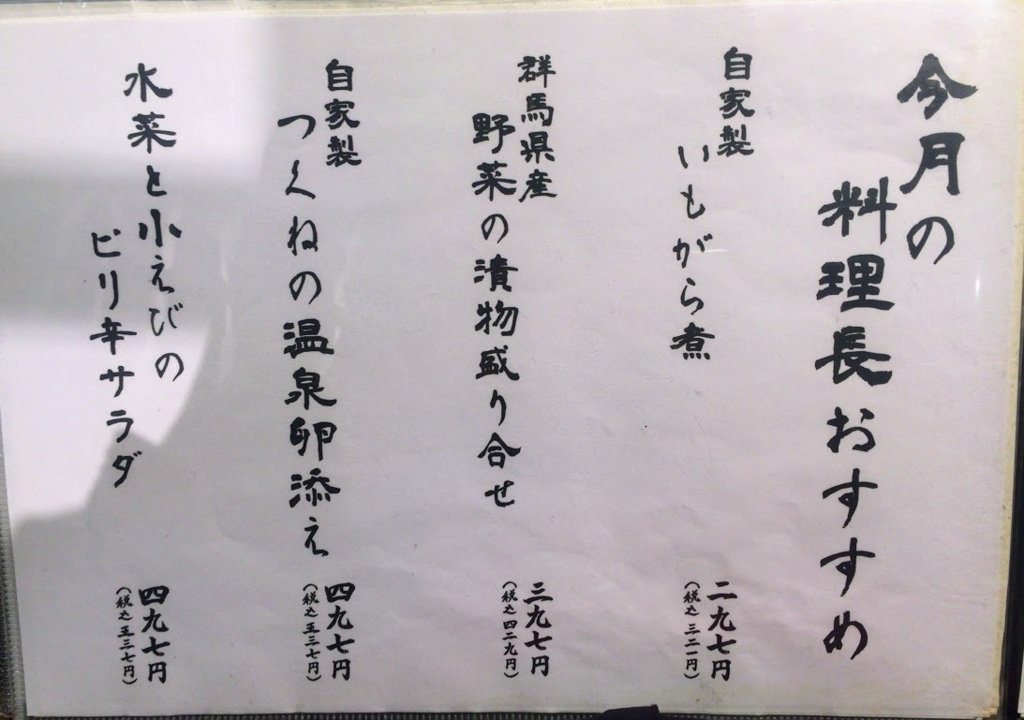 今月の
料理長おすすめ
自家製
いもがら煮
二九七円
（税込三二一円）
群馬県産
野菜の漬物盛り合せ
三九七円
（税込四二九円）
自家製
つくねの温泉卵添え
四九七円
（税込五三七円）
水菜と小えびの
ピリ辛サラダ
四九七円
（税込五三七円）